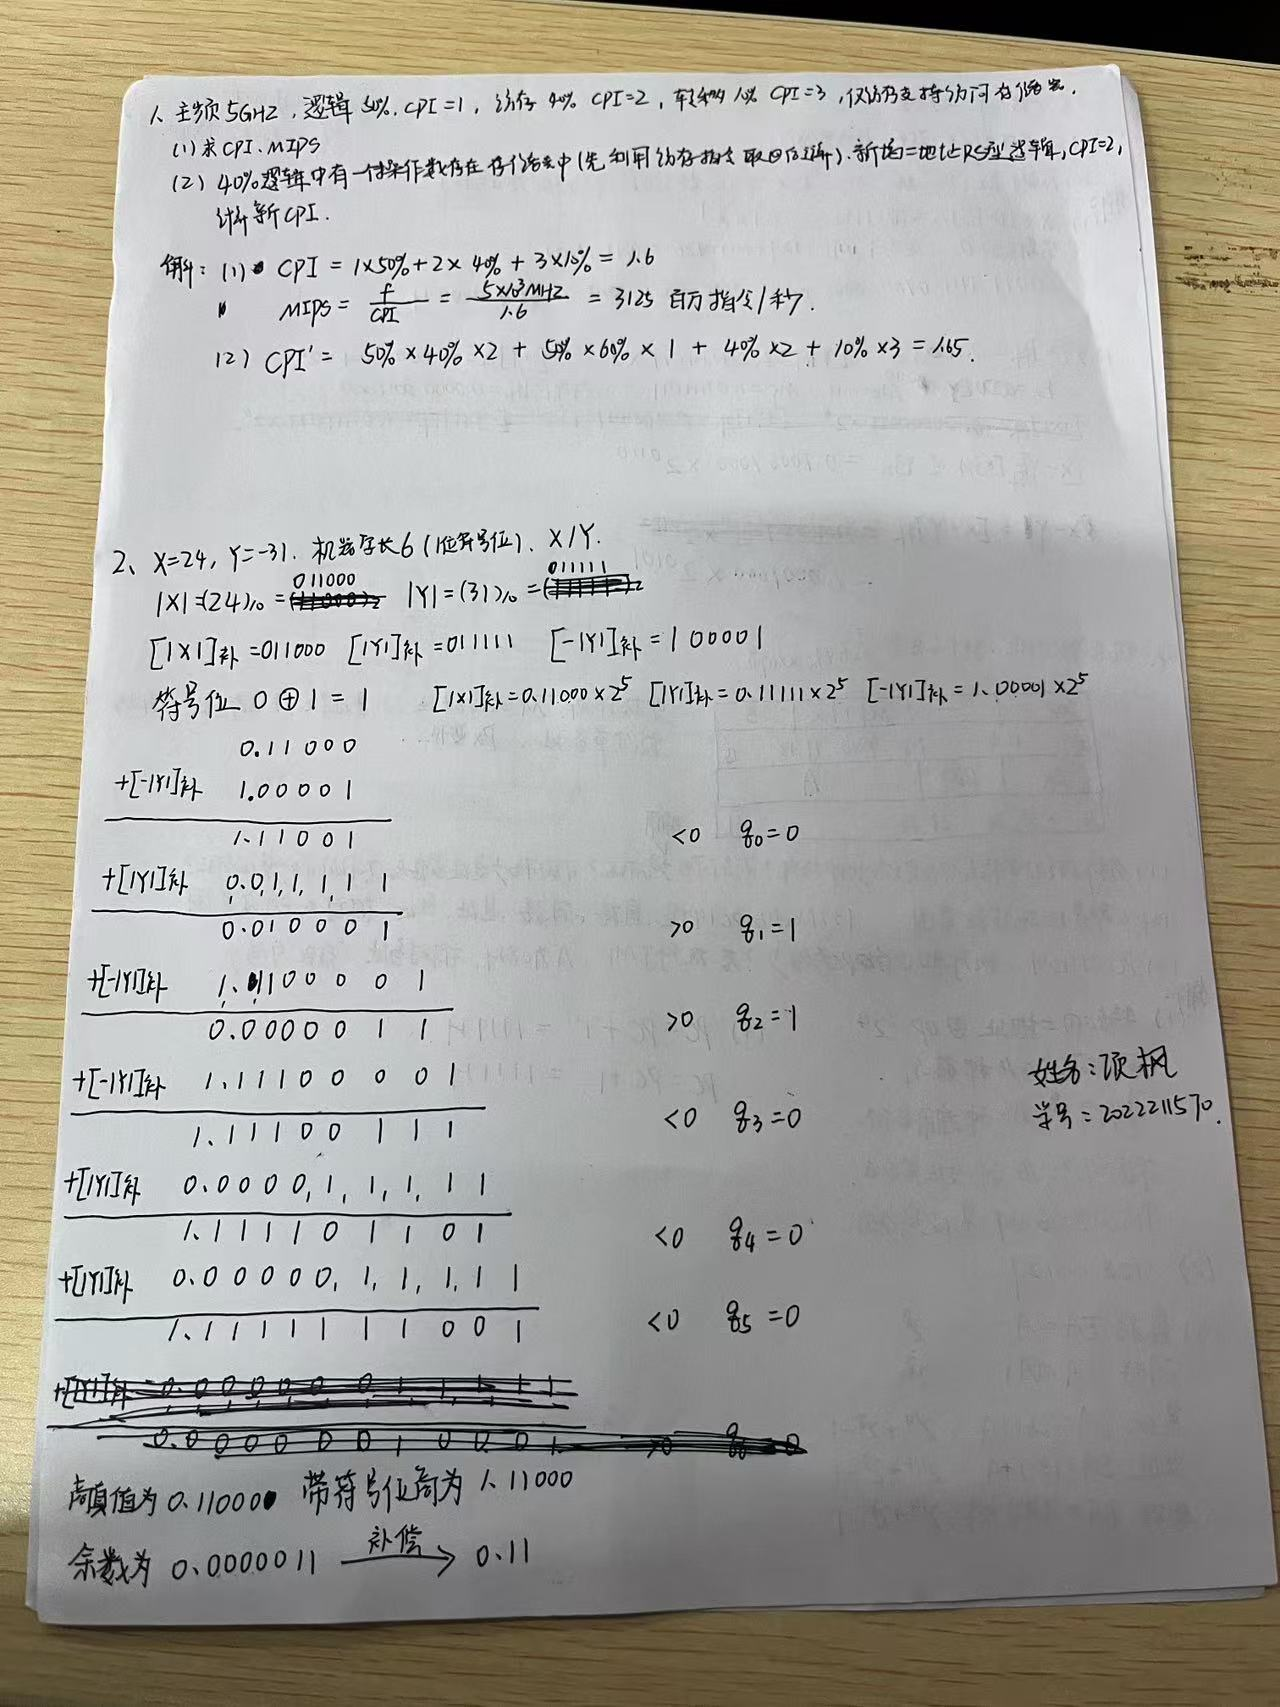 1、主频5GHZ，逻辑50%，CPI=1，访存40% CPI=2，转移10% CPI=3，仅访存支持访问存储器．
(1)求CPI、MIPS
(2) 40%逻辑中有一个操作数存在存储器中(先利用访存指令取回后运算)．新增二地址RS型逻辑，CPI=2，
计新CPI．
解：(1) CPI = 1×50% + 2×40% + 3×10% = 1.6
MIPS = f/CPI = 5×10³MHZ/1.6 = 3125 百万指令/秒．
(2) CPI' = 50%×40%×2 + 50%×60%×1 + 40%×2 + 10%×3 = 1.65．
2、X=24，Y=-31．机器字长6(1位符号位)、X/Y．
|X|=(24)₁₀=011000 |Y|=(31)₁₀=011111
[|X|]补=011000 [|Y|]补=011111 [-|Y|]补=100001
符号位 0⊕1=1 [|X|]补=0.11000×2⁵ [|Y|]补=0.11111×2⁵ [-|Y|]补=1.00001×2⁵
0.11000
+[-|Y|]补 1.00001
1.11001 <0 q₀=0
+[|Y|]补 0.011111
0.010001 >0 q₁=1
+[-|Y|]补 1.1100001
0.0000011 >0 q₂=1
+[-|Y|]补 1.11100001
1.11100111 <0 q₃=0
+[|Y|]补 0.000011111
1.111101101 <0 q₄=0
+[|Y|]补 0.0000011111
1.1111111001 <0 q₅=0
商真值为 0.11000 带符号位商为 1.11000
余数为 0.0000011 补偿→ 0.11
姓名：项枫
学号：2022211570．